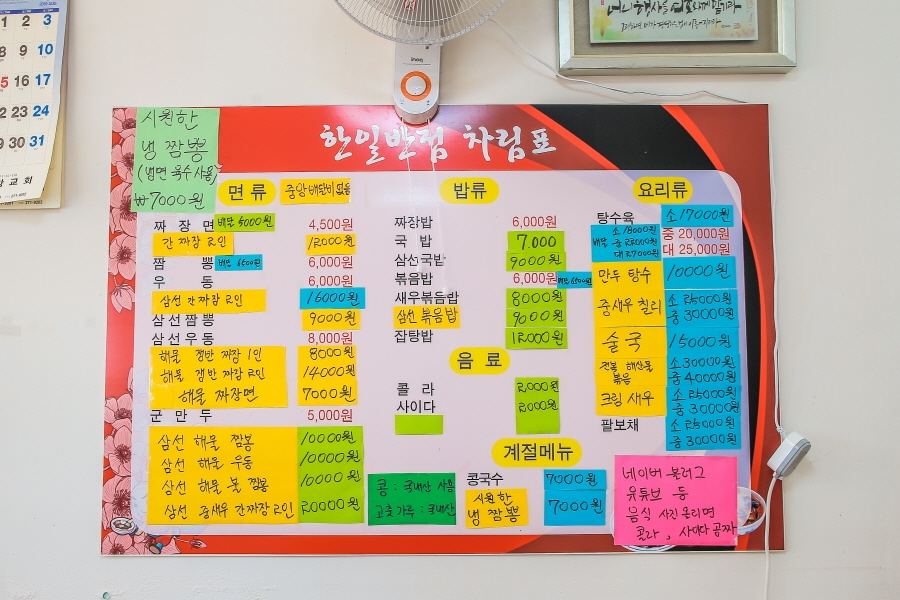 1 2 3
8 9 10
15 16 17
22 23 24
29 30 31
교회
inoq
시원한
냉 짬뽕
(냉면 육수 사용)
₩7000원
한일반점 차림표
면 류
짜 장 면 배달 5000원 4,500원
간 짜장 2인 12000원
짬 뽕 배달 6500원 6,000원
우 동 6,000원
삼선 간짜장 2인 16000원
삼선짬뽕 9000원
삼선우동 8,000원
해물 쟁반 짜장 1인 8000원
해물 쟁반 짜장 2인 14000원
해물 짜장면 7000원
군 만 두 5,000원
삼선 해물 짬뽕 10000원
삼선 해물 우동 10000원
삼선 해물 볼 짬뽕 10000원
삼선 중새우 간짜장 2인 20000원
밥류
짜장밥 6,000원
국 밥 7.000
삼선국밥 9000원
볶음밥 6,000원 배달 6500원
새우볶음밥 8000원
삼선 볶음밥 9000원
잡탕밥 12000원
음 료
콜 라 2,000원
사이다 2,000원
계절메뉴
콩국수 7000원
시원한
냉 짬뽕 7000원
콩 : 국내산 사용
고춧가루 : 국내산
요리류
탕수육 소 17000원
배달 소 18000원 중 22000원 대 27000원
중 20,000원
대 25,000원
만두 탕수 10000원
중새우 칠리 소 25000원
중 30000원
술국 15000원
전복 해산물
볶음 소 30000원
중 40000원
크림 새우 소 25000원
중 30000원
팔보채 소 25000원
중 30000원
네이버 블러그
유튜브 등
음식 사진 올리면
콜라, 사이다 공짜